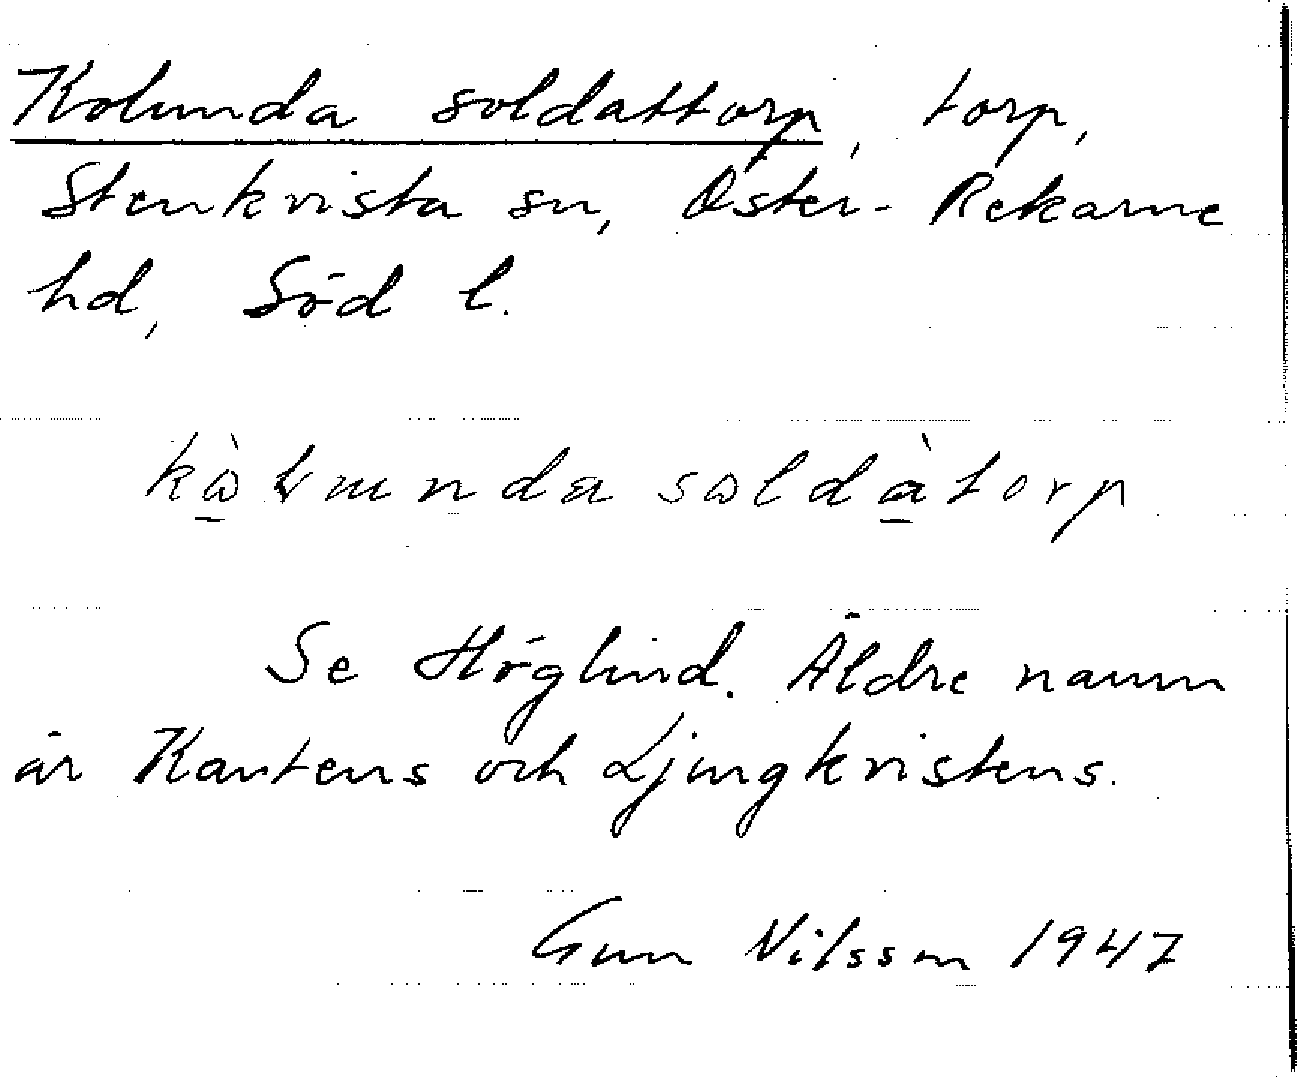 Kolunda soldattorp, torp,
Stenkvista sn, Öster-Rekarne
hd, Söd l.
soldàtorp
Se Höglind. Äldre namn
är Kantens och Ljungkvistens.
Gun Nilsson 1947